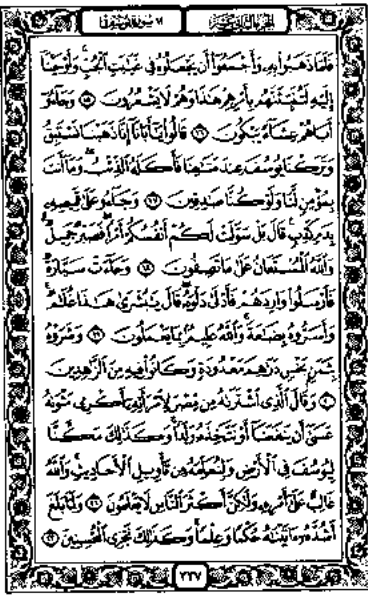 الجزء الثاني عشر سورة يوسف
فَلَمَّا ذَهَبُوا۟ بِهِۦ وَأَجْمَعُوٓا۟ أَن يَجْعَلُوهُ فِى غَيَٰبَتِ ٱلْجُبِّ ۚ وَأَوْحَيْنَآ
إِلَيْهِ لَتُنَبِّئَنَّهُم بِأَمْرِهِمْ هَٰذَا وَهُمْ لَا يَشْعُرُونَ ١٥ وَجَآءُوٓ
أَبَاهُمْ عِشَآءً يَبْكُونَ ١٦ قَالُوا۟ يَٰٓأَبَانَآ إِنَّا ذَهَبْنَا نَسْتَبِقُ
وَتَرَكْنَا يُوسُفَ عِندَ مَتَٰعِنَا فَأَكَلَهُ ٱلذِّئْبُ ۖ وَمَآ أَنتَ
بِمُؤْمِنٍ لَّنَا وَلَوْ كُنَّا صَٰدِقِينَ ١٧ وَجَآءُو عَلَىٰ قَمِيصِهِۦ
بِدَمٍ كَذِبٍ ۚ قَالَ بَلْ سَوَّلَتْ لَكُمْ أَنفُسُكُمْ أَمْرًا ۖ فَصَبْرٌ جَمِيلٌ ۖ
وَٱللَّهُ ٱلْمُسْتَعَانُ عَلَىٰ مَا تَصِفُونَ ١٨ وَجَآءَتْ سَيَّارَةٌ
فَأَرْسَلُوا۟ وَارِدَهُمْ فَأَدْلَىٰ دَلْوَهُۥ ۖ قَالَ يَٰبُشْرَىٰ هَٰذَا غُلَٰمٌ ۚ
وَأَسَرُّوهُ بِضَٰعَةً ۚ وَٱللَّهُ عَلِيمٌۢ بِمَا يَعْمَلُونَ ١٩ وَشَرَوْهُ
بِثَمَنٍۭ بَخْسٍ دَرَٰهِمَ مَعْدُودَةٍ وَكَانُوا۟ فِيهِ مِنَ ٱلزَّٰهِدِينَ
٢٠ وَقَالَ ٱلَّذِى ٱشْتَرَىٰهُ مِن مِّصْرَ لِٱمْرَأَتِهِۦٓ أَكْرِمِى مَثْوَىٰهُ
عَسَىٰٓ أَن يَنفَعَنَآ أَوْ نَتَّخِذَهُۥ وَلَدًا ۚ وَكَذَٰلِكَ مَكَّنَّا
لِيُوسُفَ فِى ٱلْأَرْضِ وَلِنُعَلِّمَهُۥ مِن تَأْوِيلِ ٱلْأَحَادِيثِ ۚ وَٱللَّهُ
غَالِبٌ عَلَىٰٓ أَمْرِهِۦ وَلَٰكِنَّ أَكْثَرَ ٱلنَّاسِ لَا يَعْلَمُونَ ٢١ وَلَمَّا بَلَغَ
أَشُدَّهُۥٓ ءَاتَيْنَٰهُ حُكْمًا وَعِلْمًا ۚ وَكَذَٰلِكَ نَجْزِى ٱلْمُحْسِنِينَ ٢٢
٢٣٧